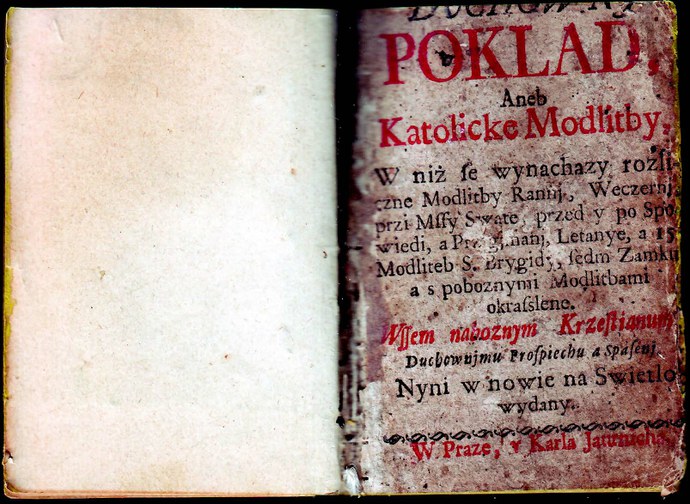 POKLAD,
Aneb
Katolicke Modlitby,
W niż ſe wynachazy rozli-
czne Modlitby Rannj, Weczernj,
przi Mſſy Swate, przed y po Spo-
wiedi, a Letanye, a 15
Modliteb S. Brygidy, ſedm Zamku
a s poboznymi Modlitbami
okraſslene.
Wſſem naboznym Krzeſtianum
Duchownjmu Proſpiechu a Spaſenj
Nyni w nowie na Swietlo
wydany.
W Praze, v Karla